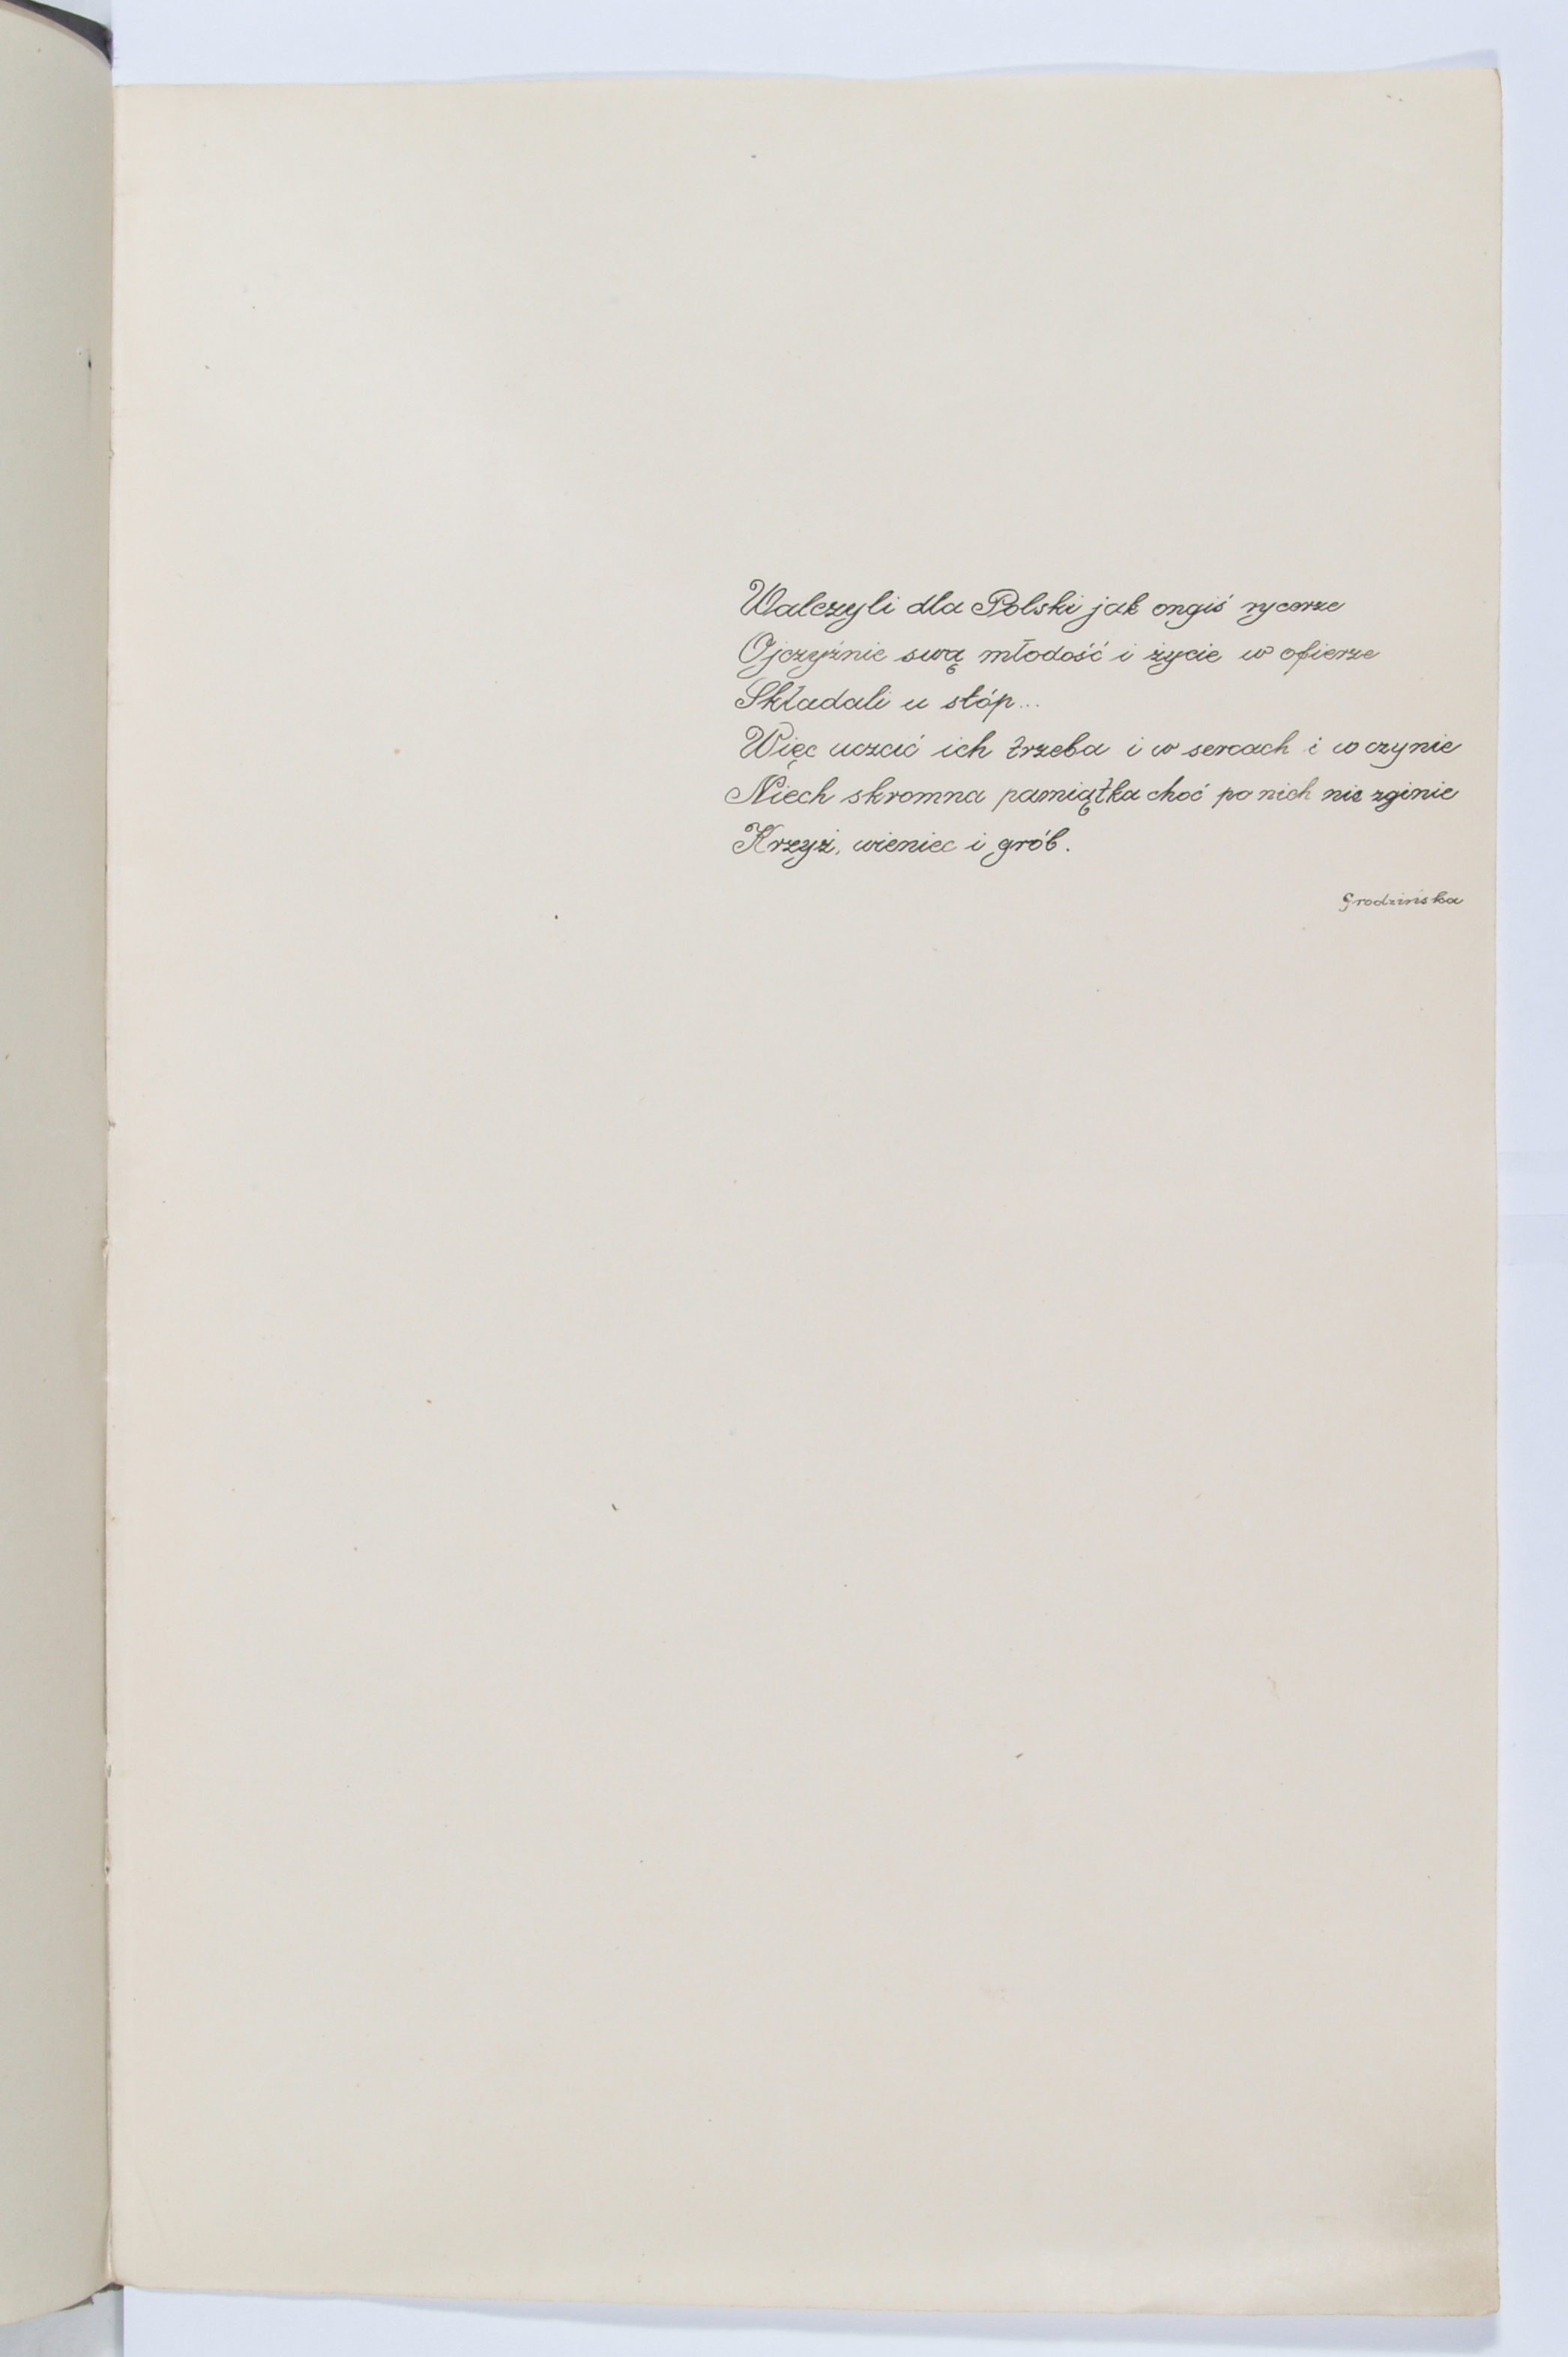 Walczyli dla Polski jak ongiś rycerze
Ojczyźnie swą młodość i życie w ofierze
Składali u stóp...
Więc uczcić ich trzeba i w sercach i w czynie
Niech skromna pamiątka choć po nich nie zginie
Krzyż, wieniec i grób.
Grodzińska